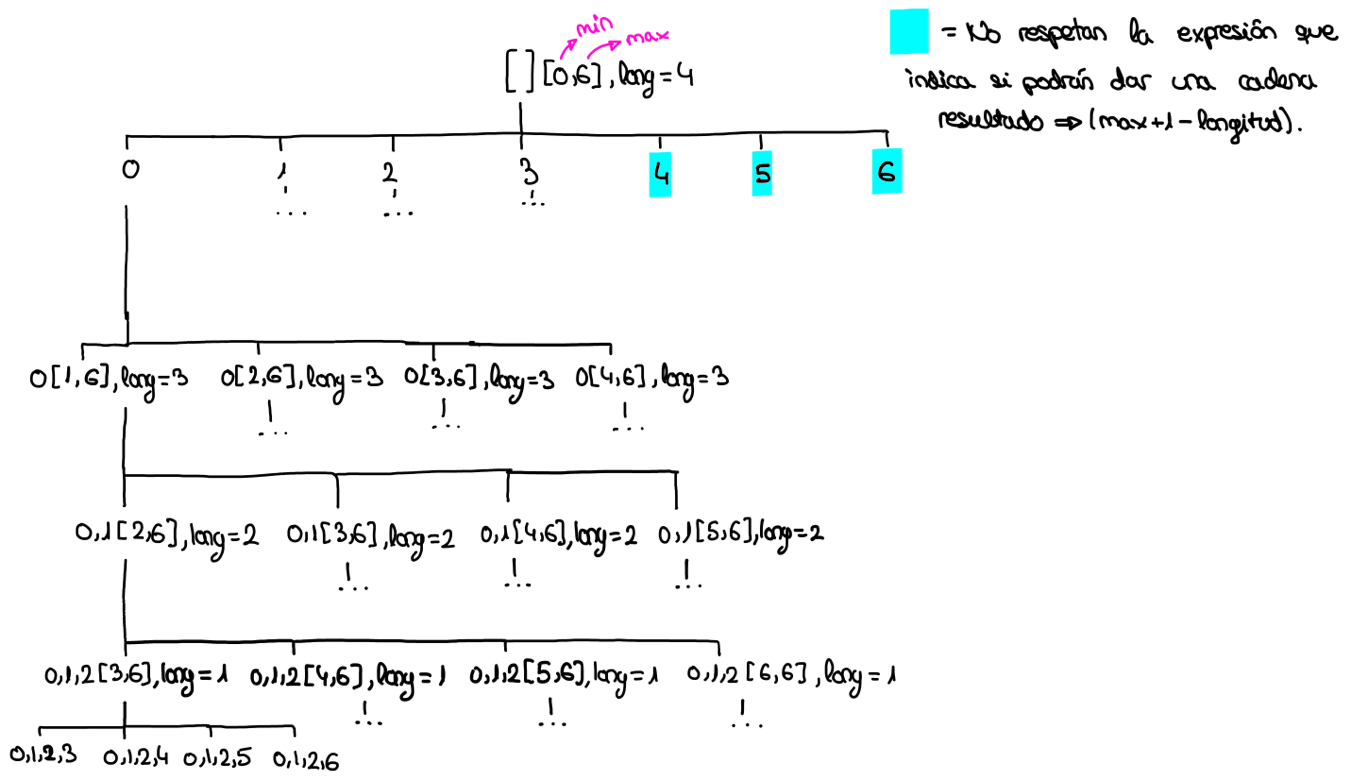 min
max
[ ] [0,6], long=4
= No respetan la expresión que
indica si podrán dar una cadena
resultado ⇒ (max+1-longitud).
0 1 2 3 4 5 6
... ... ...
0[1,6], long=3 0[2,6], long=3 0[3,6], long=3 0[4,6], long=3
... ... ...
0,1[2,6], long=2 0,1[3,6], long=2 0,1[4,6], long=2 0,1[5,6], long=2
... ... ...
0,1,2[3,6], long=1 0,1,2[4,6], long=1 0,1,2[5,6], long=1 0,1,2[6,6], long=1
... ... ...
0,1,2,3 0,1,2,4 0,1,2,5 0,1,2,6